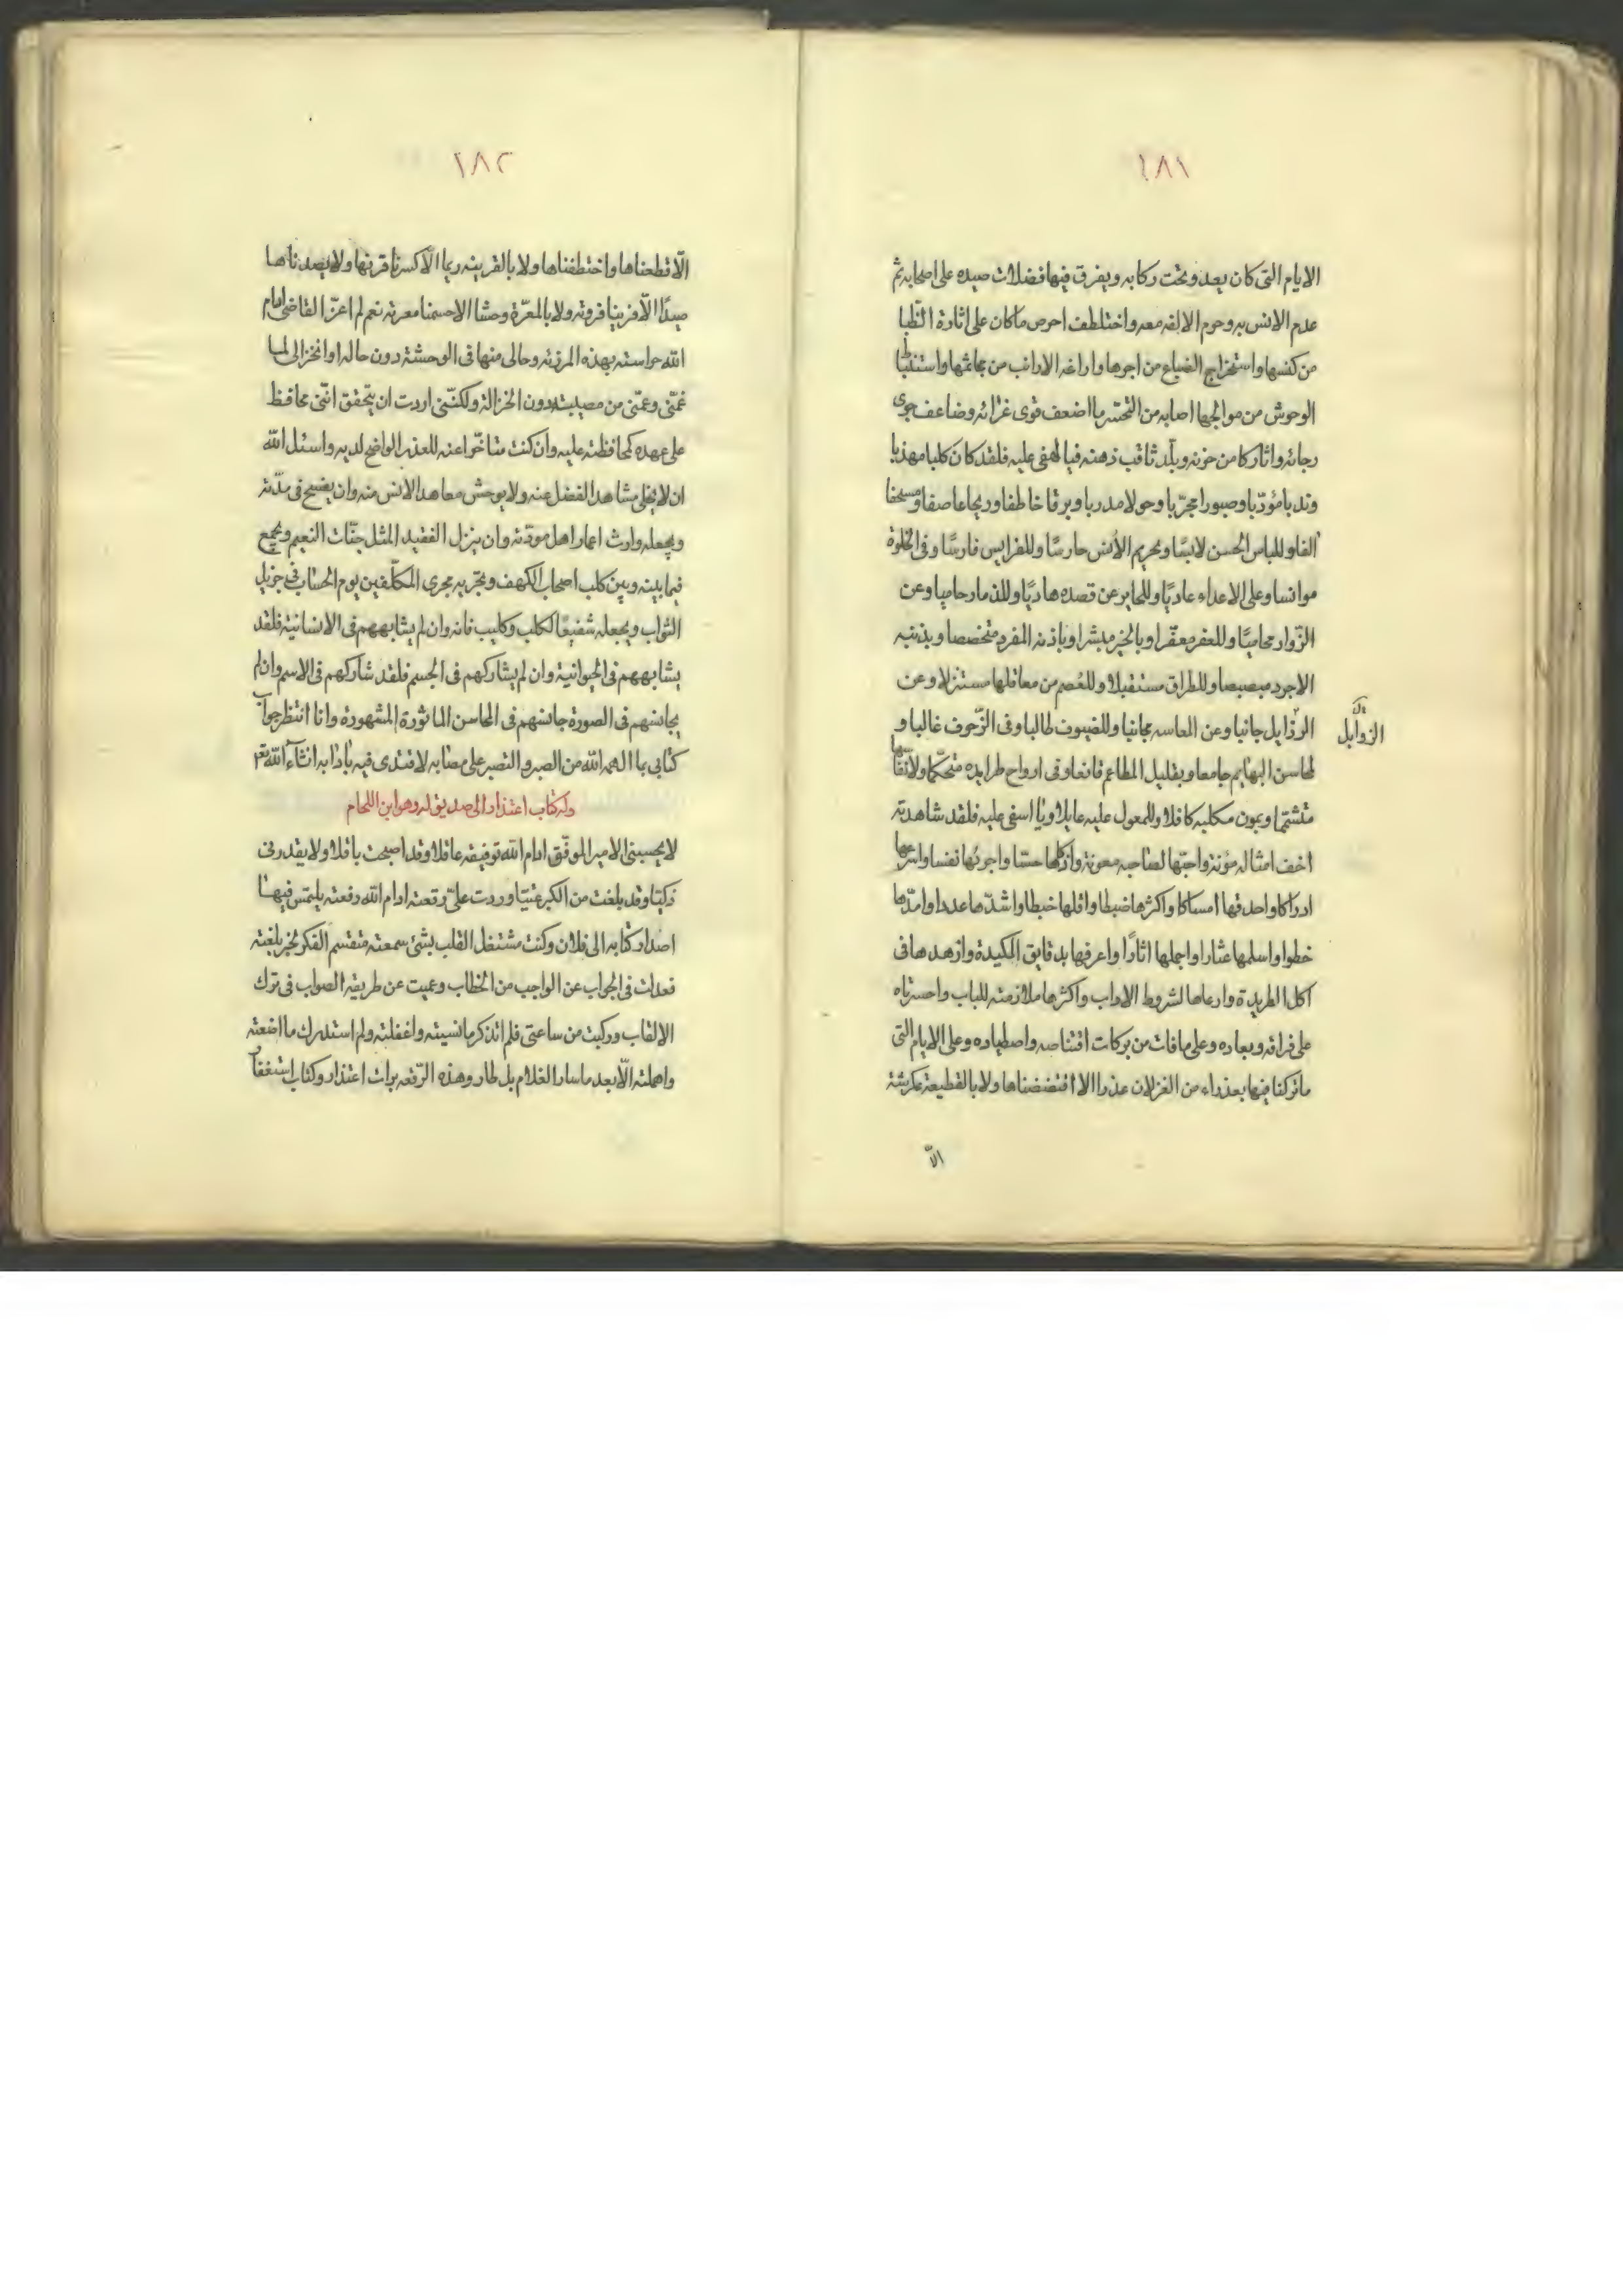 ١٨١
الايام التى كان يعدو تحت ركابه ويفرق فيها فضلات صيده على اصحابه ثم
عدم الانس به وحرم الالفه معه واختلطف احرص ماكان على اثارة الظبا
من كنسها واستخراج الضباع من اجرها واراغه الارانب من مجاثمها واستنباط
الوحوش من موالجها اصابه من التحسّر ما اضعف قوى عزائه وضاعف جوى
رجائه واثار كامن حزنه وبلّد ثاقب ذهنه فيا لهفى عليه فلقد كان كلبا مهذبا
وندبا مؤدّبا وصبورا مجرّبا وحولا مدربا وبرقا خاطفا وريحا عاصفا ومسحفا
الفا وللباس الحسن لابسًا وبحريم الانس حارسًا وللفرايس فارسًا وفى الخلوة
موانسا وعلى الاعداء عاديًا وللحاير عن قصده هاديًا وللذمار حاميا وعن
الزّوار محاميًا وللعفر معفّرا وبالخير مبشرا وباذنه المفرد متخصصا وبذنبه
الاجرد مبصبصا وللطراق مستقبلا وللعُصم من معاقلها مستنزلا وعن
الرزايل جانيا وعن المعاسه مجانبا وللضيوف طالبا وفى الزّحوف غالبا و
الزوايل
لمحاسن البهايم جامعا وبقليل المطاعم قانعا وفى ارواح طرايده متحكّما ولانقابها
متشتما وبمون مكلبه كافلا وللمعول عليه عايلا ويا اسفى عليه فلقد شاهدته
اخف امثاله مؤنة واحبّها لصاحبه معونة واذكاها حسّا واجرئها نفسا واسرعها
ادراكا واحدقها امساكا واكثرها ضبطا واقلها خبطا واشدّها عددا وامدّها
خطوا واسلمها عثارا واجملها اثارًا واعرفها بدقايق المكيدة وازهدها فى
اكل الطريدة وارعاها لشروط الاداب واكثرها ملازمته للباب واحسرتاه
على فراقه وبعاده وعلى مافات من بركات اقتناصه واصطياده وعلى الايام التى
ماتركنا فيها بعذراء من الغزلان عذرا الا افتضضناها ولا بالقطيعة عكرشة
الّا
١٨٢
الّا قطعناها واختطفناها ولا بالقرينه ريما الّا كسرنا قرنها ولا بصدناها
صيدًا الّا فرينا فروته ولا بالمعرّة وحشا الا حسمنا معرته نعم لم اعزّ القاضى ادام
الله حراسته بهذه المرزته وحالى منها فى الوحشة دون حاله او انخزالى لما
غمّنى وعمّنى من مصيبته دون انخزاله ولكنّنى اردت ان يتحقق انّنى محافظ
على عهده كمحافظته عليه وان كنت متاخّرا عنه للعذر الواضح لديه واسئل الله
ان لا يخلى مشاهد الفضل عنه ولا يوحش معاهد الانس منه وان يفسح فى مدّته
ويجعله وارث اعمار اهل مودّته وان ينزل الفقيد المثل جنّات النعيم ويجمع
فيما بينه وبين كلب اصحاب الكهف ويجريه مجرى المكلّفين يوم الحساب فى جزيل
الثواب ويجعله شفيعًا لكلب وكليب فانه وان لم يشابههم فى الانسانية فلقد
يشابههم فى الحيوانية وان لم يشاركهم فى الجسم فلقد شاركهم فى الاسم وان لم
يجانسهم فى الصورة جانسهم فى المحاسن الماثورة المشهورة وانا انتظر جواب
كتابى بما الهمه الله من الصبر والتصبر على مصابه لاقتدى فيه بادابه انشاء الله تع
وله كتاب اعتذار الى صديق له وهو ابن اللحام
لا يحسبنى الامير الموفّق ادام الله توفيقه عاقلا وقد اصبحت باقلا ولا يقدرنى
زكيّا وقد بلغت من الكبر عتيّا وردت علىّ رقعته ادام الله رفعته يلتمس فيها
اصدار كتابه الى فلان وكنت مشتغل القلب بشئ سمعته متقسم الفكر بخبر بلغته
فعدلت فى الجواب عن الواجب من الخطاب وعميت عن طريقه الصواب فى ترك
الالقاب وركبت من ساعتى فلم اتذكر مانسيته واغفلته ولم استدرك ما اضعته
واهملته الّا بعد ماسار الغلام بل طار وهذه الرّقعه برات اعتذار وكتاب استغفار